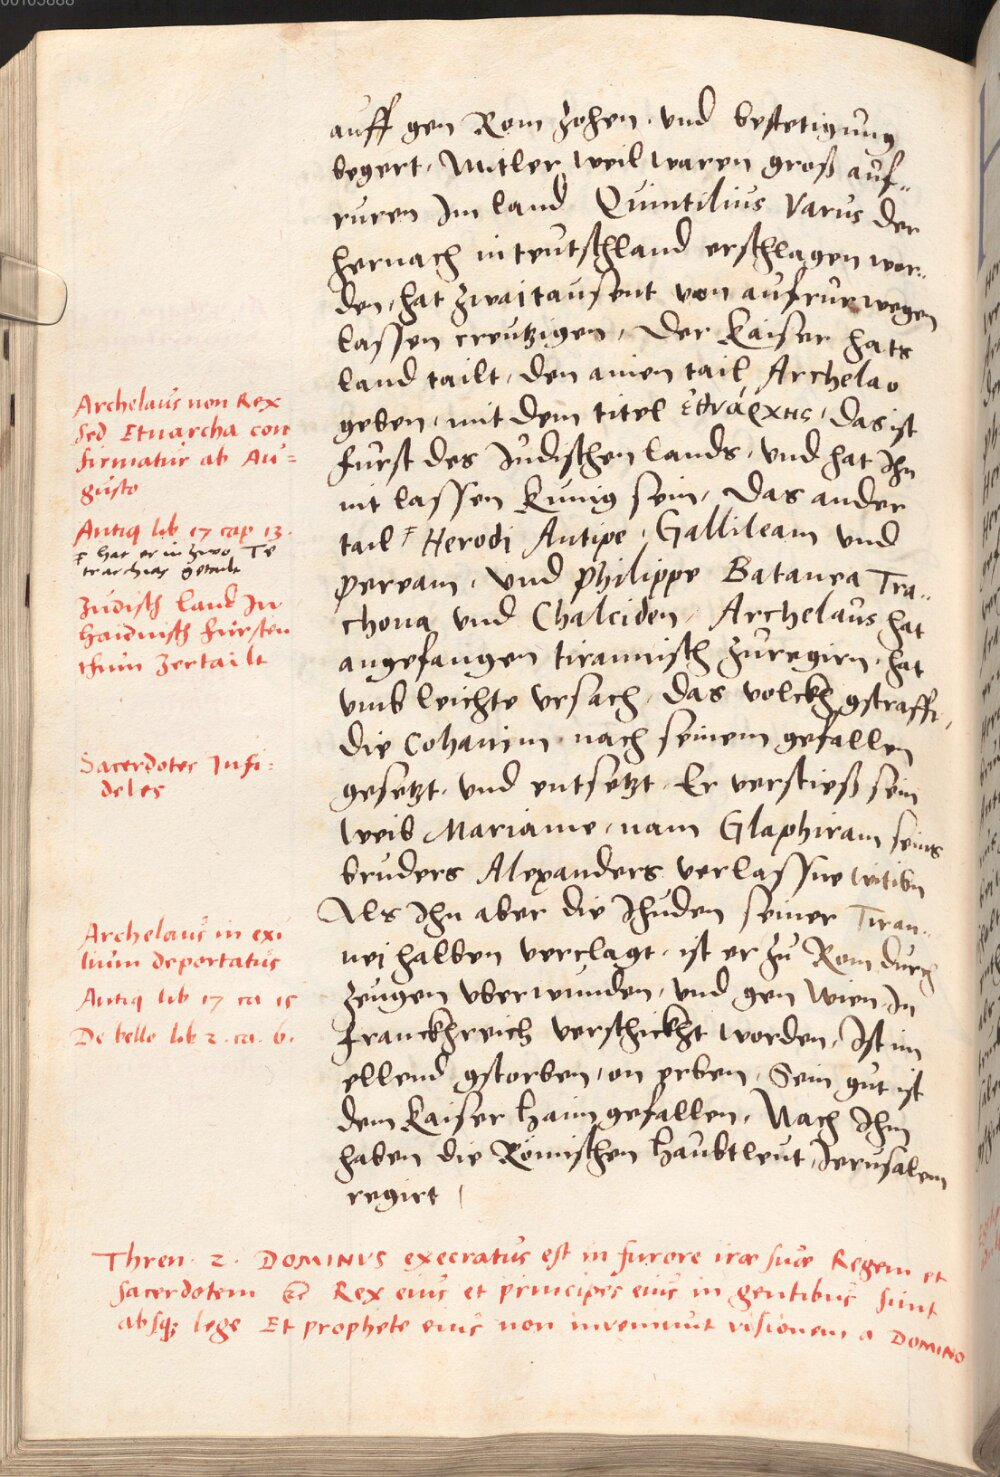 auff gen Rom zohen, und bestetigung
begert, Mitler weil waren groß auf„
ruren Im land Quintilius Varus der
hernach in teutschland erschlagen wor„
den, hat zwaitausent von aufrur wegen
lassen creutzigen, Der Kaiser hats
land tailt, den ainen tail Archelao
geben, mit dem titel ἐθνάρχης, das ist
furst des Judischen lands, und hat Ihn
nit lassen Kunig sein, Das ander
tail Herodi Antipe, Gallileam und
peream, und Philippe Batanea Tra„
chona und Chalciden, Archelaus hat
angefangen tirannisch zuregirn, hat
umb leichte ursach, das volckh gstrafft,
die Cohanim nach seinem gefallen
gesetzt, und entsetzt, Er verstieß sein
weib Mariame, nam Glaphiram seins
bruders Alexanders verlassne witibn
Als Ihn aber die Ihuden seiner Tiran„
nei halben verclagt, ist er zu Rom durch
zeugen uberwunden, und gen Wien, In
Franckhreich verschickht worden, Ist im
ellend gstorben, on erben, Sein gut ist
dem Kaiser haim gefallen, Nach Ihm
haben die Römischen haubtleut, Jerusalem
regirt
Archelaus non Rex
sed Etnarcha con
firmatur ab Au=
gusto
Antiq lib 17 cap 13.
hat er in zwo Te
trarchias getailt
Judisch land In
haidnisch fursten
thum zertailt
Sacerdotes Infi=
deles
Archelaus in exi
lium deportatus
Antiq lib 17 ca 15
De bello lib 2. ca. 6.
Thren. 2. DOMINVS execratus est in furore iræ suæ Regem et
sacerdotem Rex eius et principes eius in gentibus sunt
absq; lege Et prophete eius non invenerunt visionem a DOMINO